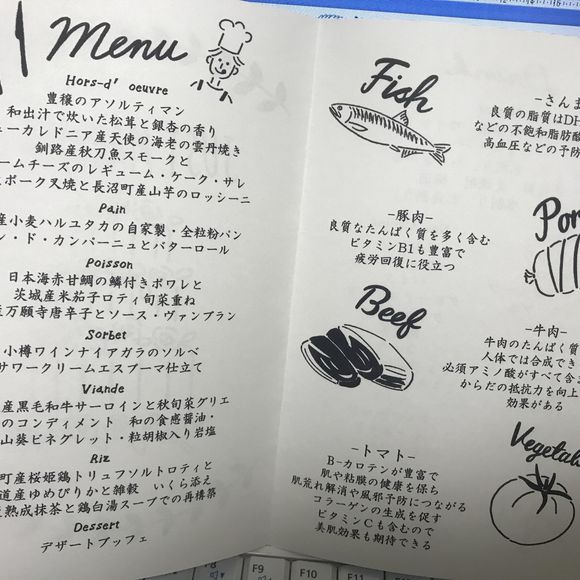 Menu
Hors-d'oeuvre
豊穣のアソルティマン
和出汁で炊いた松茸と銀杏の香り
ューカレドニア産天使の海老の雲丹焼き
釧路産秋刀魚スモークと
ームチーズのレギューム・ケーク・サレ
ポーク叉焼と長沼町産山芋のロッシーニ
Pain
産小麦ハルユタカの自家製・全粒粉パン
ン・ド・カンパーニュとバターロール
Poisson
日本海赤甘鯛の鱗付きポワレと
茨城産米茄子ロティ旬菜重ね
万願寺唐辛子とソース・ヴァンブラン
Sorbet
小樽ワインナイアガラのソルベ
サワークリームエスプーマ仕立て
Viande
産黒毛和牛サーロインと秋旬菜グリエ
のコンディメント 和の食感醤油・
山葵ビネグレット・粒胡椒入り岩塩
Riz
町産桜姫鶏トリュフソルトロティと
道産ゆめぴりかと雑穀 いくら添え
熟成抹茶と鶏白湯スープでの再構築
Dessert
デザートブッフェ
Fish
-さんま
良質の脂質はDH
などの不飽和脂肪酸
高血圧などの予防
-豚肉-
良質なたんぱく質を多く含む
ビタミンB1も豊富で
疲労回復に役立つ
Por
Beef
-牛肉-
牛肉のたんぱく質
人体では合成でき
必須アミノ酸がすべて含
からだの抵抗力を向上
効果がある
-トマト-
B-カロテンが豊富で
肌や粘膜の健康を保ち
肌荒れ解消や風邪予防につながる
コラーゲンの生成を促す
ビタミンCも含むので
美肌効果も期待できる
Vegetab
F9
F10
F11